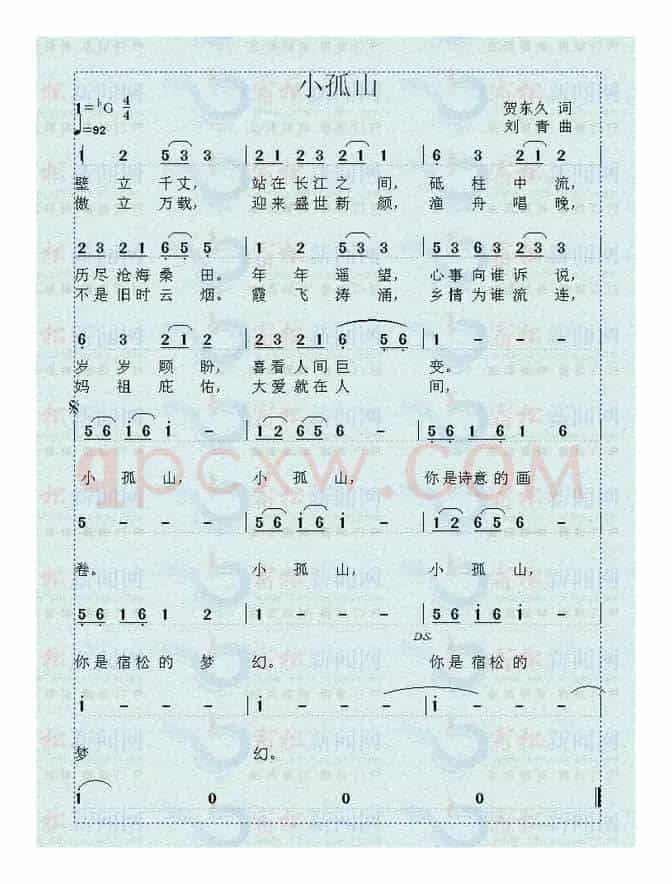 小孤山
1=♭G 4/4
♩=92
贺东久 词
刘青 曲
1 2 5 3 3 | 2 1 2 3 2 1 1 | 6 3 2 1 2 |
壁立千丈, 站在长江之间, 砥柱中流,
傲立万载, 迎来盛世新颜, 渔舟唱晚,
2 3 2 1 6 5 5 | 1 2 5 3 3 | 5 3 6 3 2 3 3 |
历尽沧海桑田。年年遥望, 心事向谁诉说,
不是旧时云烟。霞飞涛涌, 乡情为谁流连,
6 3 2 1 2 | 2 3 2 1 6 5 6 | 1 - - - |
岁岁顾盼, 喜看人间巨变。
妈祖庇佑, 大爱就在人间,
5 6 i 6 i - | 1 2 6 5 6 - | 5 6 1 6 1 6 |
小孤山, 小孤山, 你是诗意的画
5 - - - | 5 6 i 6 i - | 1 2 6 5 6 - |
卷。 小孤山, 小孤山,
5 6 1 6 1 2 | 1 - - - | 5 6 i 6 i - |
D.S.
你是宿松的梦幻。 你是宿松的
i - - - | i - - - | i - - - |
梦 幻。
1 0 0 0
qpcxw.com
宿松新闻网